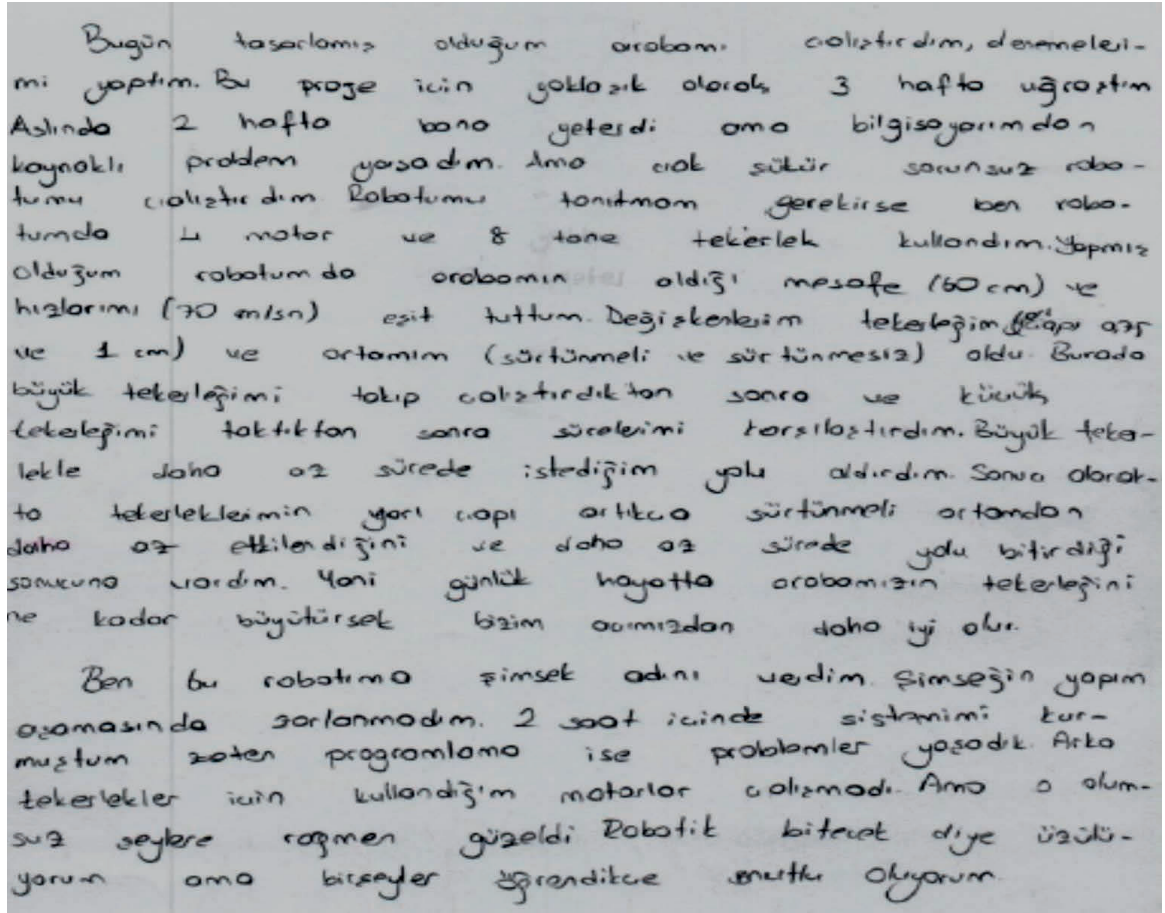 Bugün tasarlamış olduğum arabamı çalıştırdım, denemeleri-
mi yaptım. Bu proje için yaklaşık olarak 3 hafta uğraştım
Aslında 2 hafta bana yeterdi ama bilgisayarımdan
kaynaklı problem yaşadım. Ama çok şükür sorunsuz robo-
tumu çalıştırdım Robotumu tanıtmam gerekirse ben robo-
tumda 4 motor ve 8 tane tekerlek kullandım. Yapmış
olduğum robotumda arabamın aldığı mesafe (60 cm) ve
hızlarımı (70 m/sn) eşit tuttum. Değişkenlerim tekerleğim
ve 1 cm) ve ortamım (sürtünmeli ve sürtünmesiz) oldu. Burada
büyük tekerleğimi takıp çalıştırdıktan sonra ve küçük
tekerleğimi taktıktan sonra sürelerimi karşılaştırdım. Büyük teker-
lekle daha az sürede istediğim yolu aldırdım. Sonuç olarak-
ta tekerleklerimin yarı çapı artıkça sürtünmeli ortamdan
daha az etkilendiğini ve daha az sürede yolu bitirdiği
sonucuna vardım. Yani günlük hayatta arabamızın tekerleğini
ne kadar büyütürsek bizim açımızdan daha iyi olur.
Ben bu robotıma şimşek adını verdim. Şimşeğin yapım
aşamasında zorlanmadım. 2 saat içinde sistemimi kur-
muştum zaten programlama ise problemler yaşadık. Arka
tekerlekler için kullandığım motorlar çalışmadı. Ama o olum-
suz şeylere rağmen güzeldi Robotik bitecek diye üzülü-
yorum ama birşeyler öğrendikçe mutlu oluyorum.